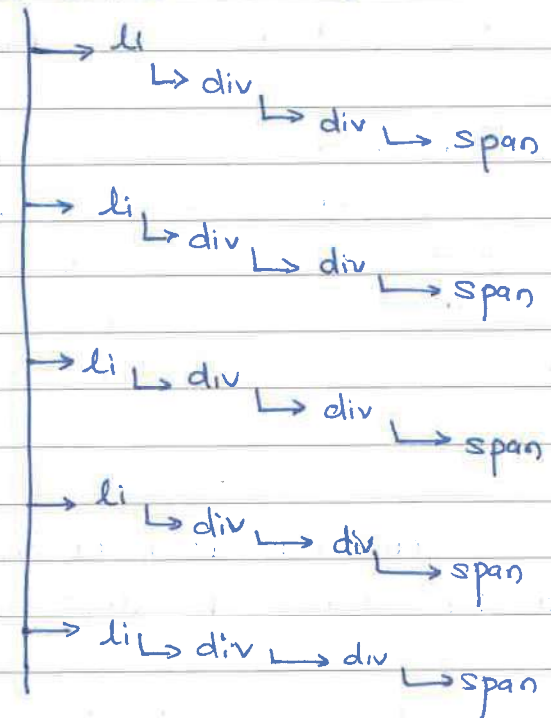 li
div
div
span
li
div
div
span
li
div
div
span
li
div
div
span
li
div
div
span